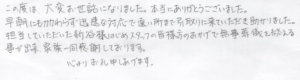 この度は、大変お世話になりました。本当にありがとうございました。
早朝にもかかわらず迅速な対応で遠い所まで引取りに来ていただき助かりました。
担当していただいた 様はじめスタッフの皆様方のおかげで無事葬儀を終える
事が出来、家族一同感謝しております。
心よりお礼申しあげます。